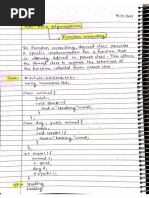 Run-time polymorphism
Function overriding
In function overriding, derived class provides
a specific implementation for a function that
is already defined in parent class. This allows
the derived class to the behaviour of
the function inherited from parent class.
Code
using namespace std;
class animal {
public:
void speak() {
cout << "speaking";
}
};
class dog : public animal {
public:
void speak() {
cout << "barking";
}
};
int main() {
animal a;
a.speak();
dog d;
d.speak();
}
speaking
barking